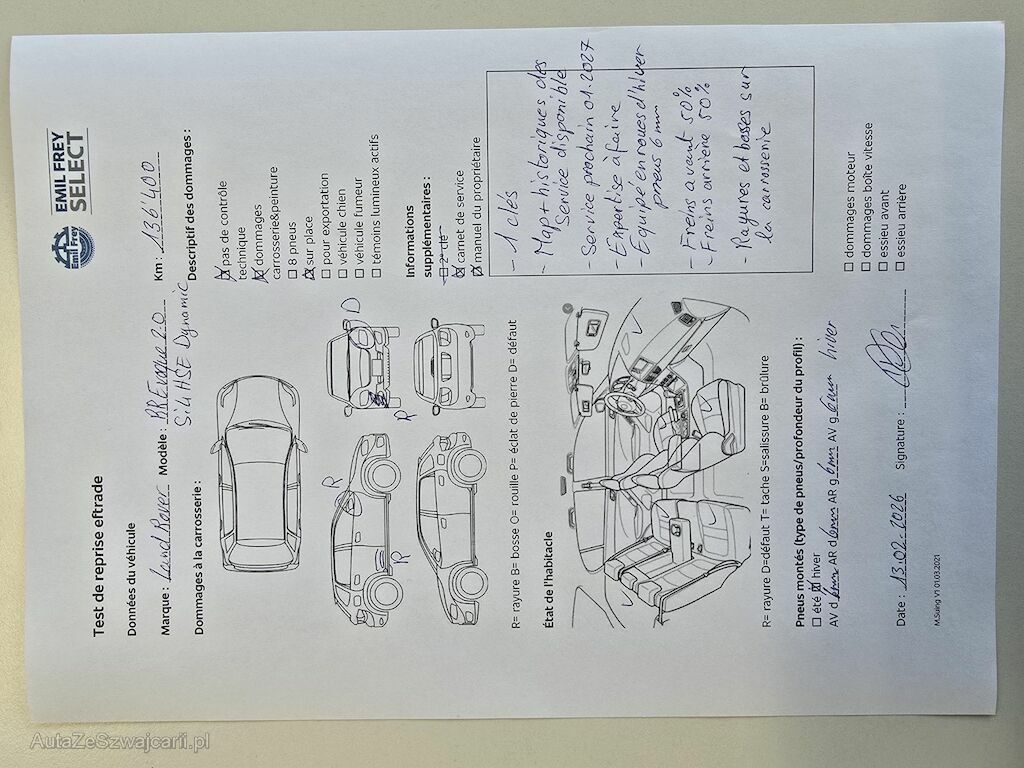 EMIL FREY
SELECT
Emil Frey
Test de reprise eftrade
Données du véhicule
Marque : Land Rover Modèle : RR Evoque 2.0 Km : 136'400
Si4 HSE Dynamic
Dommages à la carrosserie :
Descriptif des dommages :
☒ pas de contrôle
technique
☒ dommages
carrosserie&peinture
☐ 8 pneus
☒ sur place
☐ pour exportation
☐ véhicule chien
☐ véhicule fumeur
☐ témoins lumineux actifs
D
R
R
R
Informations
supplémentaires :
☐ 2e clé
☒ carnet de service
☒ manuel du propriétaire
R= rayure B= bosse O= rouille P= éclat de pierre D= défaut
État de l'habitacle
- 1 clés
- Map + historiques des
Service disponible
- Service prochain 01.2027
- Expertise à faire
- Equipé en roues d'hiver
pneus 6 mm
- Freins avant 50%
- Freins arrière 50%
- Rayures et bosses sur
la carrosserie
R= rayure D=défaut T= tache S=salissure B= brûlure
Pneus montés (type de pneus/profondeur du profil) :
☐ été ☒ hiver
AV d 6mm AR d 6mm AR g 6mm AV g 6mm hiver
☐ dommages moteur
☐ dommages boîte vitesse
☐ essieu avant
☐ essieu arrière
Date : 13.02.2026 Signature :
M.Suing V1 01.03.2021
AutaZeSzwajcarii.pl